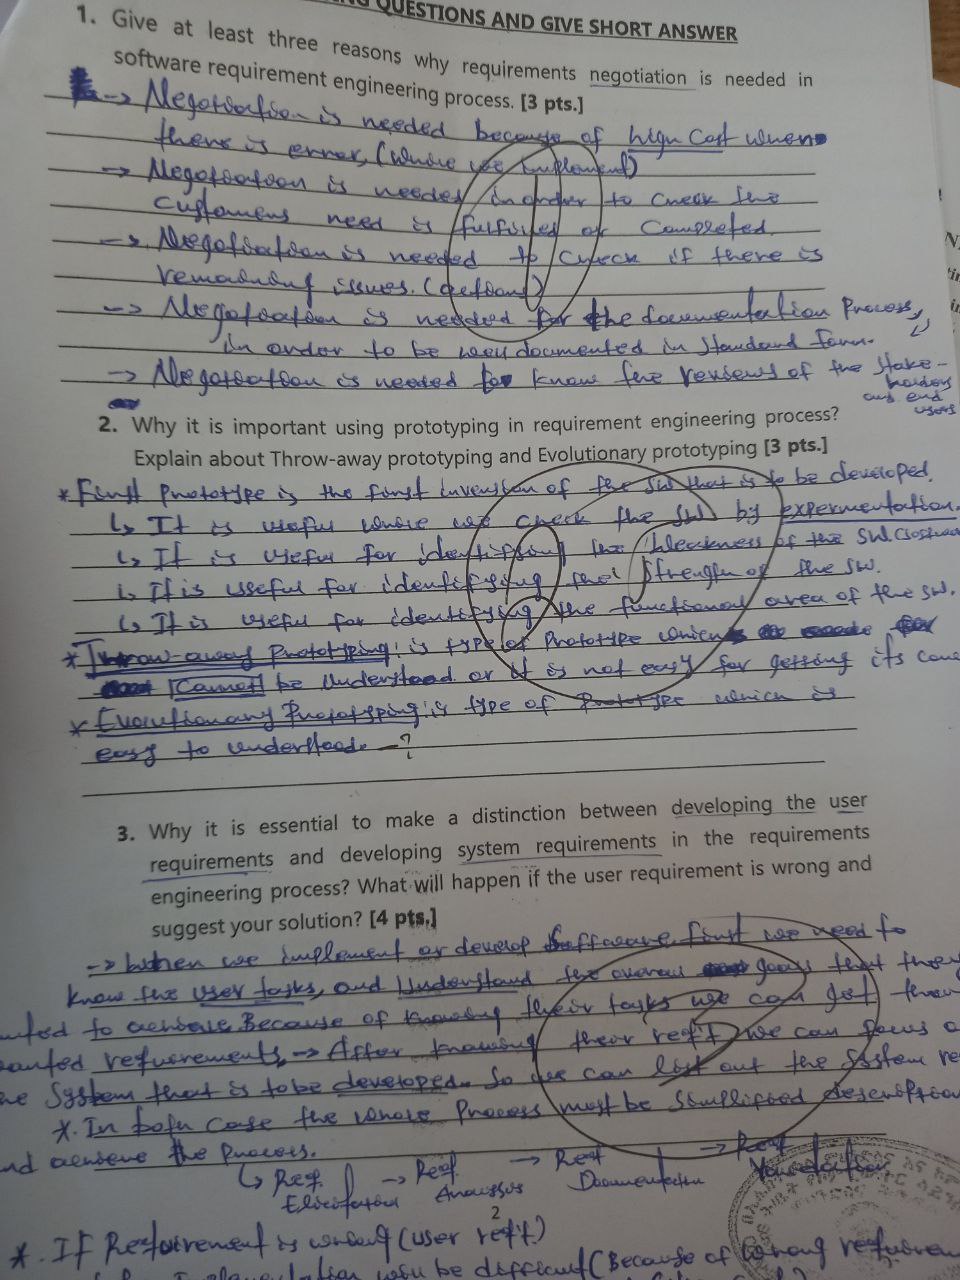 NG QUESTIONS AND GIVE SHORT ANSWER
1. Give at least three reasons why requirements negotiation is needed in
software requirement engineering process. [3 pts.]
-> Negotiation is needed because of high cost when
there is error, (while we implement)
-> Negotiation is needed in order to check the
customers need is fulfilled or completed.
-> Negotiation is needed to check if there is
remaining issues.
-> Negotiation is needed for the documentation process,
in order to be well documented in standard form.
-> Negotiation is needed to know the reviews of the stake-
holders
and end
users
2. Why it is important using prototyping in requirement engineering process?
Explain about Throw-away prototyping and Evolutionary prototyping [3 pts.]
* First prototype is the first invension of the sw that is to be developed.
↳ It is useful while we check the sw by expermentation.
↳ It is useful for identifying the Weakness of the sw.
↳ It is useful for identifying the Strength of the sw.
↳ It is useful for identifying the functional area of the sw.
* Throw-away Prototyping: is type of prototype which
Cannot be Understood or it is not easy for getting its
* Evolutionary Prototyping: is type of Prototype which is
easy to understood. -?
3. Why it is essential to make a distinction between developing the user
requirements and developing system requirements in the requirements
engineering process? What will happen if the user requirement is wrong and
suggest your solution? [4 pts.]
-> When we implement or develop Software first we need to
know the user tasks, and Understand the overall goals that they
to achieve. Because of knowing their tasks we can get their
requirements. -> After knowing their req't we can focus
System that is to be developed. So we can list out the System
*. In both case the whole Process must be simplified
achieve the process.
↳ Req. -> Req. -> Req. -> Req.
Elicitation Analysis Documentation Validation
2
*. If Requirement is wrong (user req't)
will be difficult (Because of wrong